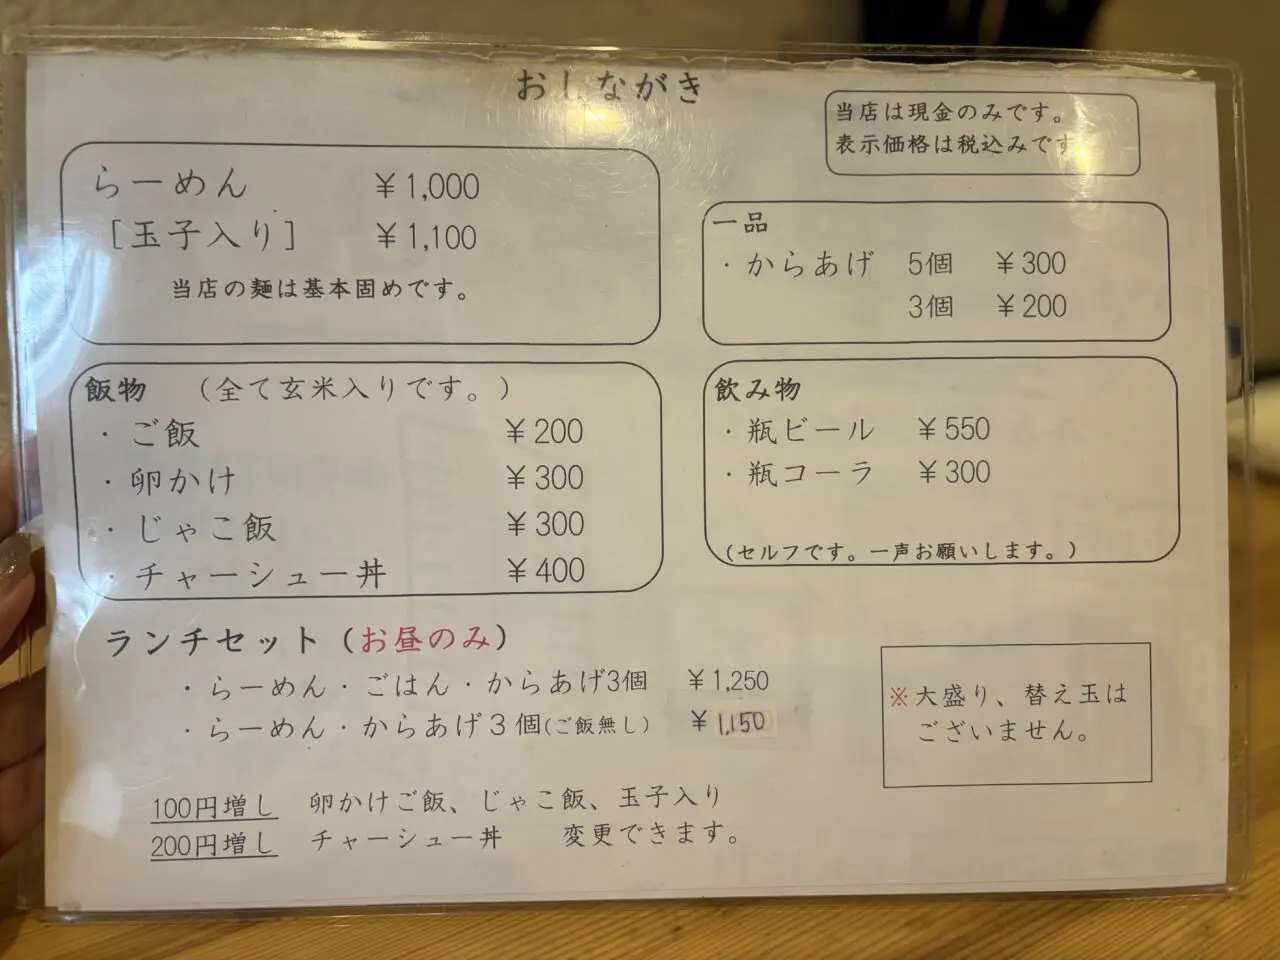 おしながき
当店は現金のみです。
表示価格は税込みです
らーめん ￥1,000
［玉子入り］ ￥1,100
当店の麺は基本固めです。
一品
・からあげ 5個 ￥300
3個 ￥200
飯物 （全て玄米入りです。）
・ご飯 ￥200
・卵かけ ￥300
・じゃこ飯 ￥300
・チャーシュー丼 ￥400
飲み物
・瓶ビール ￥550
・瓶コーラ ￥300
（セルフです。一声お願いします。）
ランチセット（お昼のみ）
・らーめん・ごはん・からあげ3個 ￥1,250
・らーめん・からあげ３個(ご飯無し) ￥1,150
※大盛り、替え玉は
ございません。
100円増し 卵かけご飯、じゃこ飯、玉子入り
200円増し チャーシュー丼 変更できます。